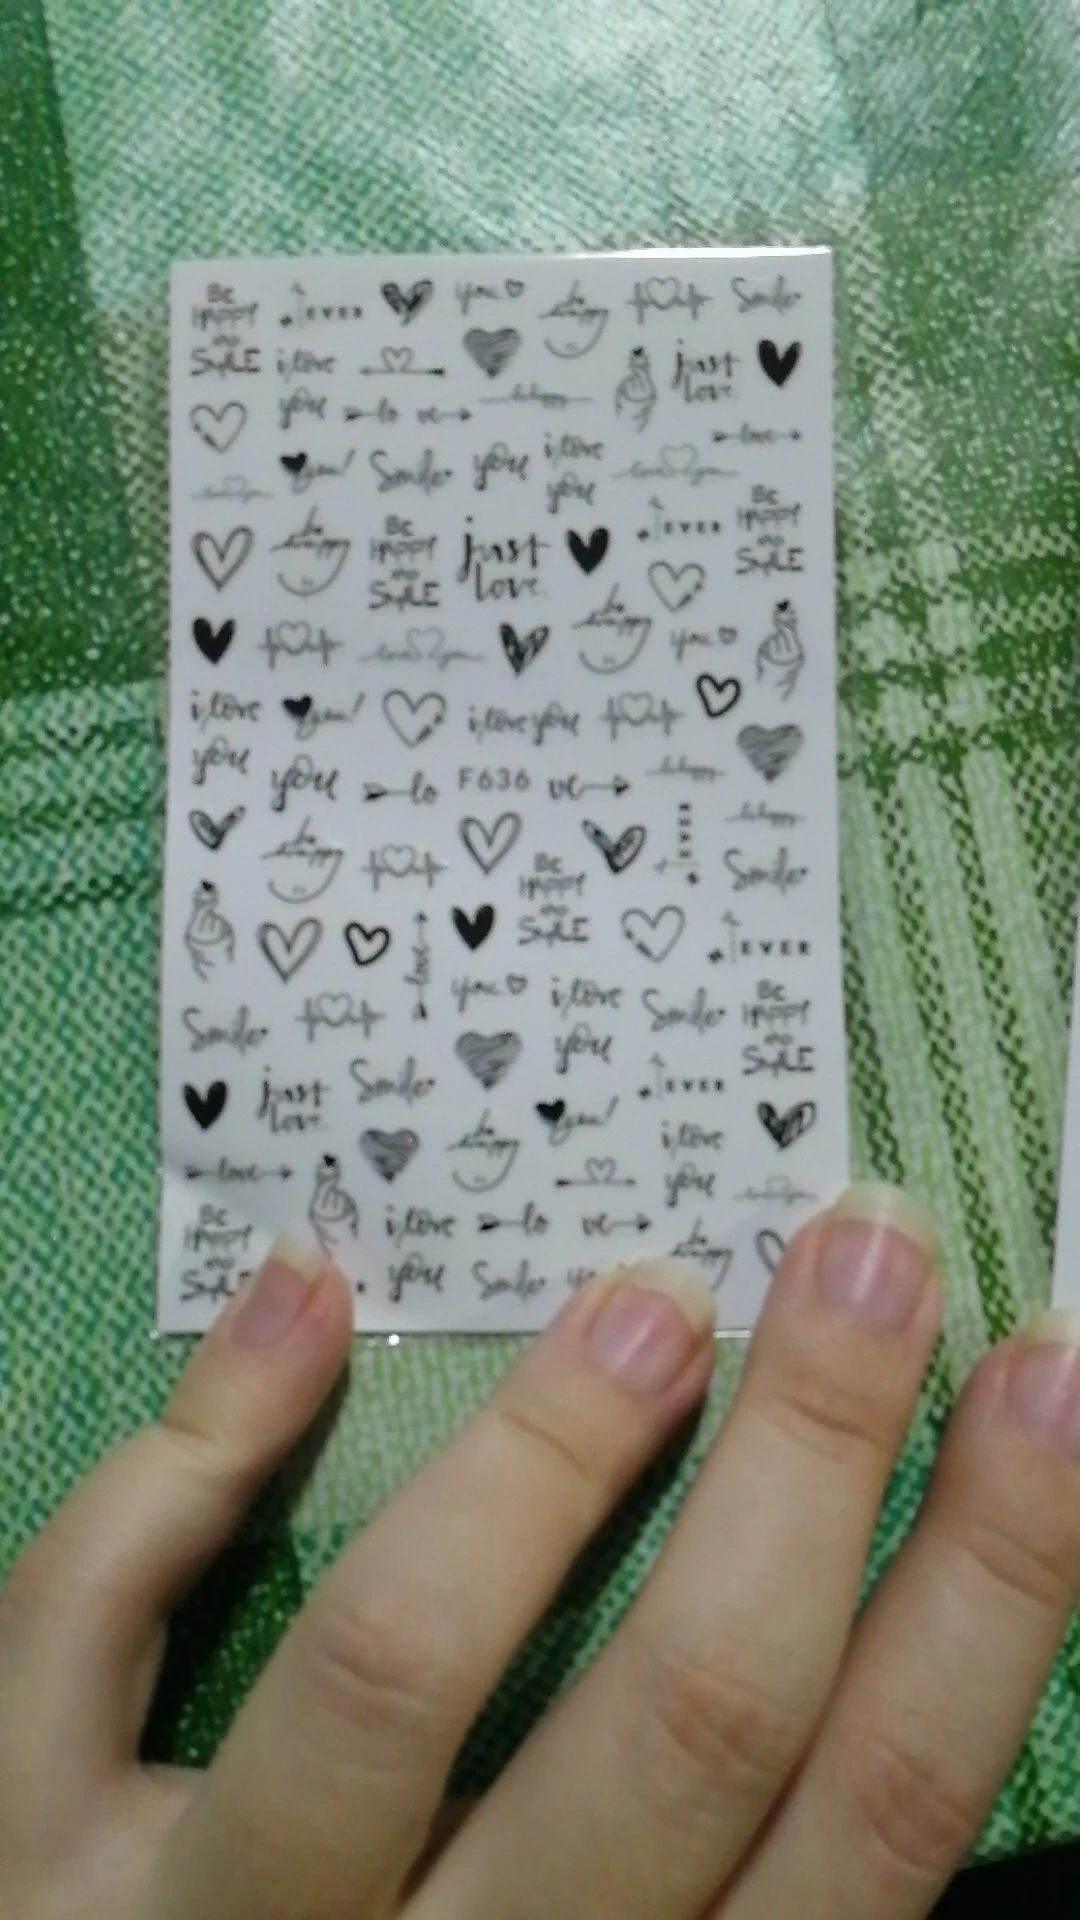 BE HAPPY AND SMILE
EVER
you
be happy
Smile
i love you
lo ve
just love
love
you!
Smile
you
i love you
love you
be happy
BE HAPPY AND SMILE
just love
EVER
BE HAPPY AND SMILE
love you
be happy
you
i love you
you!
i love you
you
lo
F636
ve
be happy
EVER
BE HAPPY AND SMILE
Smile
love
EVER
you
i love you
Smile
BE HAPPY AND SMILE
Smile
just love
Smile
EVER
you!
be happy
i love you
love
BE HAPPY AND SMILE
i love you
lo ve
Smile